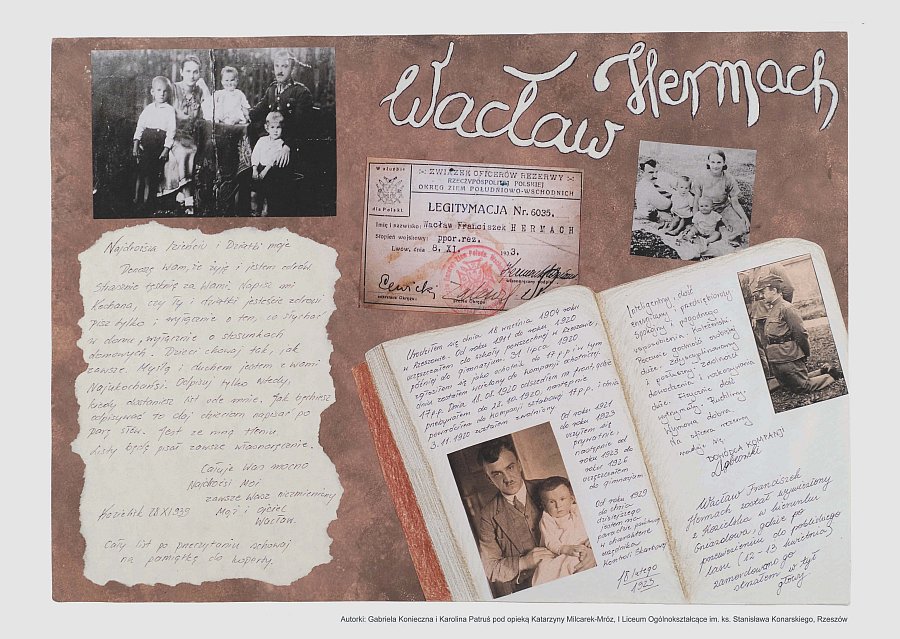 Wacław Hermach
W służbie
dla Polski
ZWIĄZEK OFICERÓW REZERWY
RZECZYPOSPOLITEJ POLSKIEJ
OKRĘG ZIEM POŁUDNIOWO-WSCHODNICH
LEGITYMACJA Nr. 6035.
Imię i nazwisko: Wacław Franciszek HERMACH
Stopień wojskowy: ppor.rez.
Lwów, dnia 8. XI. 1933.
Najdroższa Izieńciu i Dziatki moje
Donoszę Wam, że żyję i jestem zdrów
Strasznie tęsknię za Wami. Napisz mi
Kochana, czy Ty i dziatki jesteście zdrowi
pisz tylko i wyłącznie o tem, co słychać
w domu, wyłącznie o stosunkach
domowych. Dzieci chowaj tak, jak
zawsze. Myślą i duchem jestem z wami
Najukochańsi. Odpisuj tylko wtedy,
kiedy dostaniesz list ode mnie. Jak będziesz
odpisywać to daj dzieciom napisać po
parę słów. Jest ze mną Heniu
Listy będę pisał zawsze własnoręcznie.
Całuję Was mocno
Najdrożsi Moi
zawsze Wasz niezmienny
Mąż i Ojciec
Kozielsk 28 XI 1939
Wacław.
Cały list po przeczytaniu schowaj
na pamiątkę do koperty.
Urodziłem się dnia 18 września 1904 roku
w Rzeszowie. Od roku 1911 do roku 1920
uczęszczałem do szkoły powszechnej w Rzeszowie,
później do gimnazjum. 31 lipca 1920
zgłosiłem się jako ochotnik do 17 p.p. i w tym
dniu zostałem wcielony do kompanji ochotniczej
17 p.p. Dnia 18.08.1920 odszedłem na front, gdzie
przebywałem do 28.10.1920, następnie
powróciłem do kompanji sztabowej 17 p.p. i dnia
3.11.1920 zostałem zwolniony
Od roku 1921
do roku 1923
uczyłem się
prywatnie,
następnie od
roku 1923 do
roku 1926
uczęszczałem
do gimnazjum
Od roku 1929
do chwili
dzisiejszego
jestem na
posadzie państwowej
w charakterze
urzędnika
Kontroli Skarbowej
18 lutego
1933
Inteligentny, dość
energiczny i przedsiębiorczy
Spokojny i pogodnego
usposobienia. Koleżeński.
Poczucie godności osobistej
duże. Zdyscyplinowany
i posłuszny. Zdolności
dowodzenia i rozkazywania
duże. Fizycznie dość
wytrzymały. Ruchliwy.
Wymowa dobra.
Na oficera rezerwy
nadaje się.
DOWÓDCA KOMPANJI
Dąbrowski
Wacław Franciszek
Hermach został wywieziony
z Kozielska w kierunku
Gniazdowa, gdzie po
przewiezieniu do pobliskiego
lasu (12-13 kwietnia)
zamordowano go
strzałem w tył
głowy
Autorki: Gabriela Konieczna i Karolina Patruś pod opieką Katarzyny Milcarek-Mróz, I Liceum Ogólnokształcące im. ks. Stanisława Konarskiego, Rzeszów